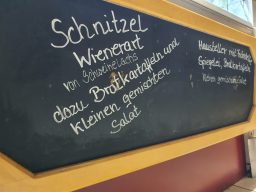 Schnitzel
Wienerart
von Schweinelachs
dazu Bratkartoffeln und
kleinen gemischten
Salat
Hausteller mit
Spiegelei, Bratkartoffeln